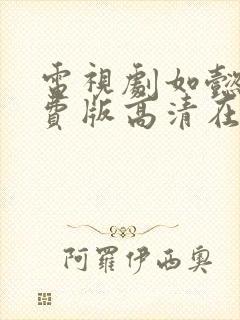 電視劇如懿
費版高清在
阿羅伊西奧